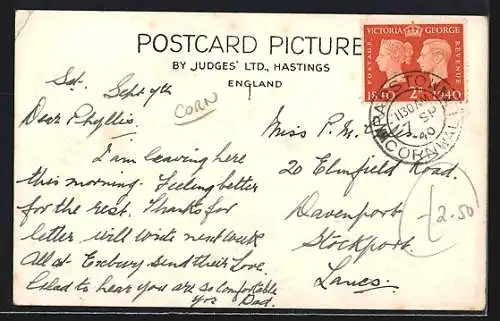 POSTCARD PICTURE
BY JUDGES' LTD., HASTINGS
ENGLAND
VICTORIA GEORGE
POSTAGE
REVENUE
1840 2d 1940
PADSTOW
1130AM
7 SP
40
CORNWALL
CORN
Sat. Sept 7th
Dear Phyllis.
I am leaving here
this morning. Feeling better
for the rest. Thanks for
letter will write next week
All at Exbury send their Love.
Glad to hear you are so comfortable
yrs Dad.
Miss P. M.
20 Elmfield Road.
Davenport
Stockport.
Lancs.
2.50